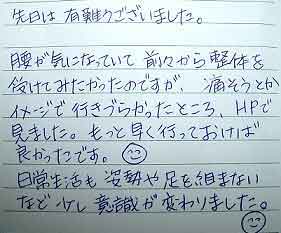 先日は有難うございました。
腰が気になっていて前々から整体を
受けてみたかったのですが、痛そうとか
イメージで行きづらかったところ、HPで
見ました。もっと早く行っておけば
良かったです。
日常生活も姿勢や足を組まない
など少し意識が変わりました。